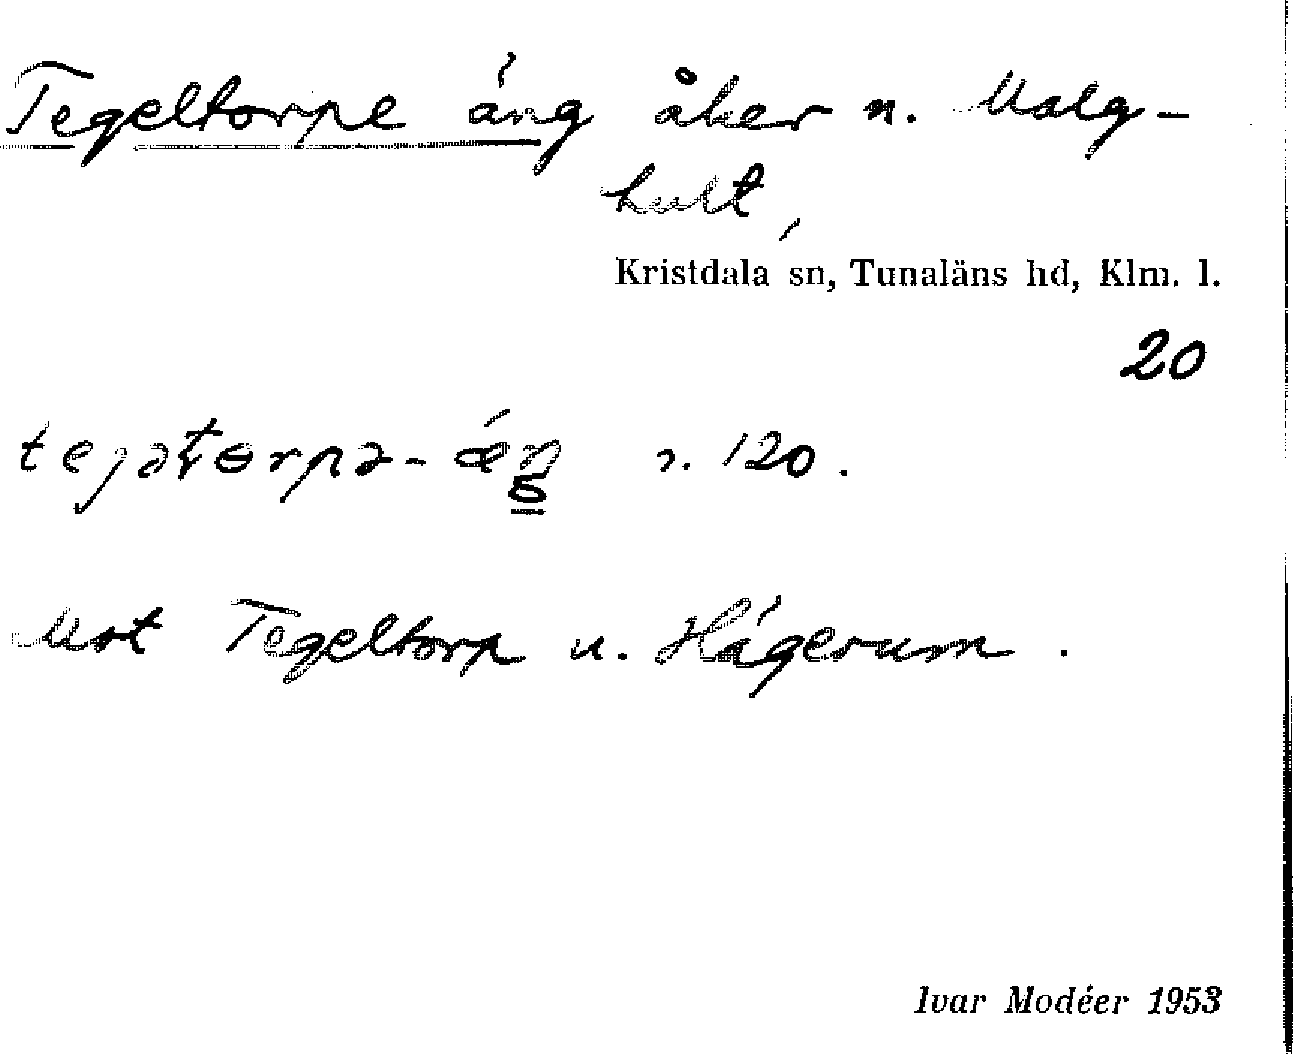 Tegeltorpe äng åker n. Malg-
hult,
Kristdala sn, Tunaläns hd, Klm. l.
20
r. 120.
Mot Tegeltorp u. Hägerum.
Ivar Modéer 1953